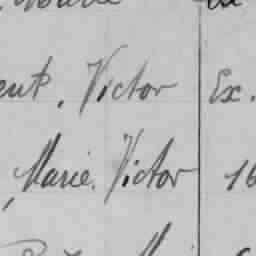 ent, Victor Ex.
, Marie, Victor 16